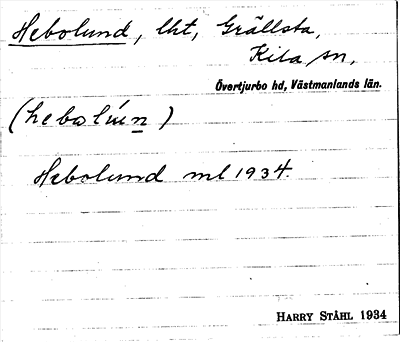 Hebolund, lht, Grällsta,
Kila sn,
Övertjurbo hd, Västmanlands län.
(hebolúṉ)
Hebolund ml 1934.
HARRY STÅHL 1934